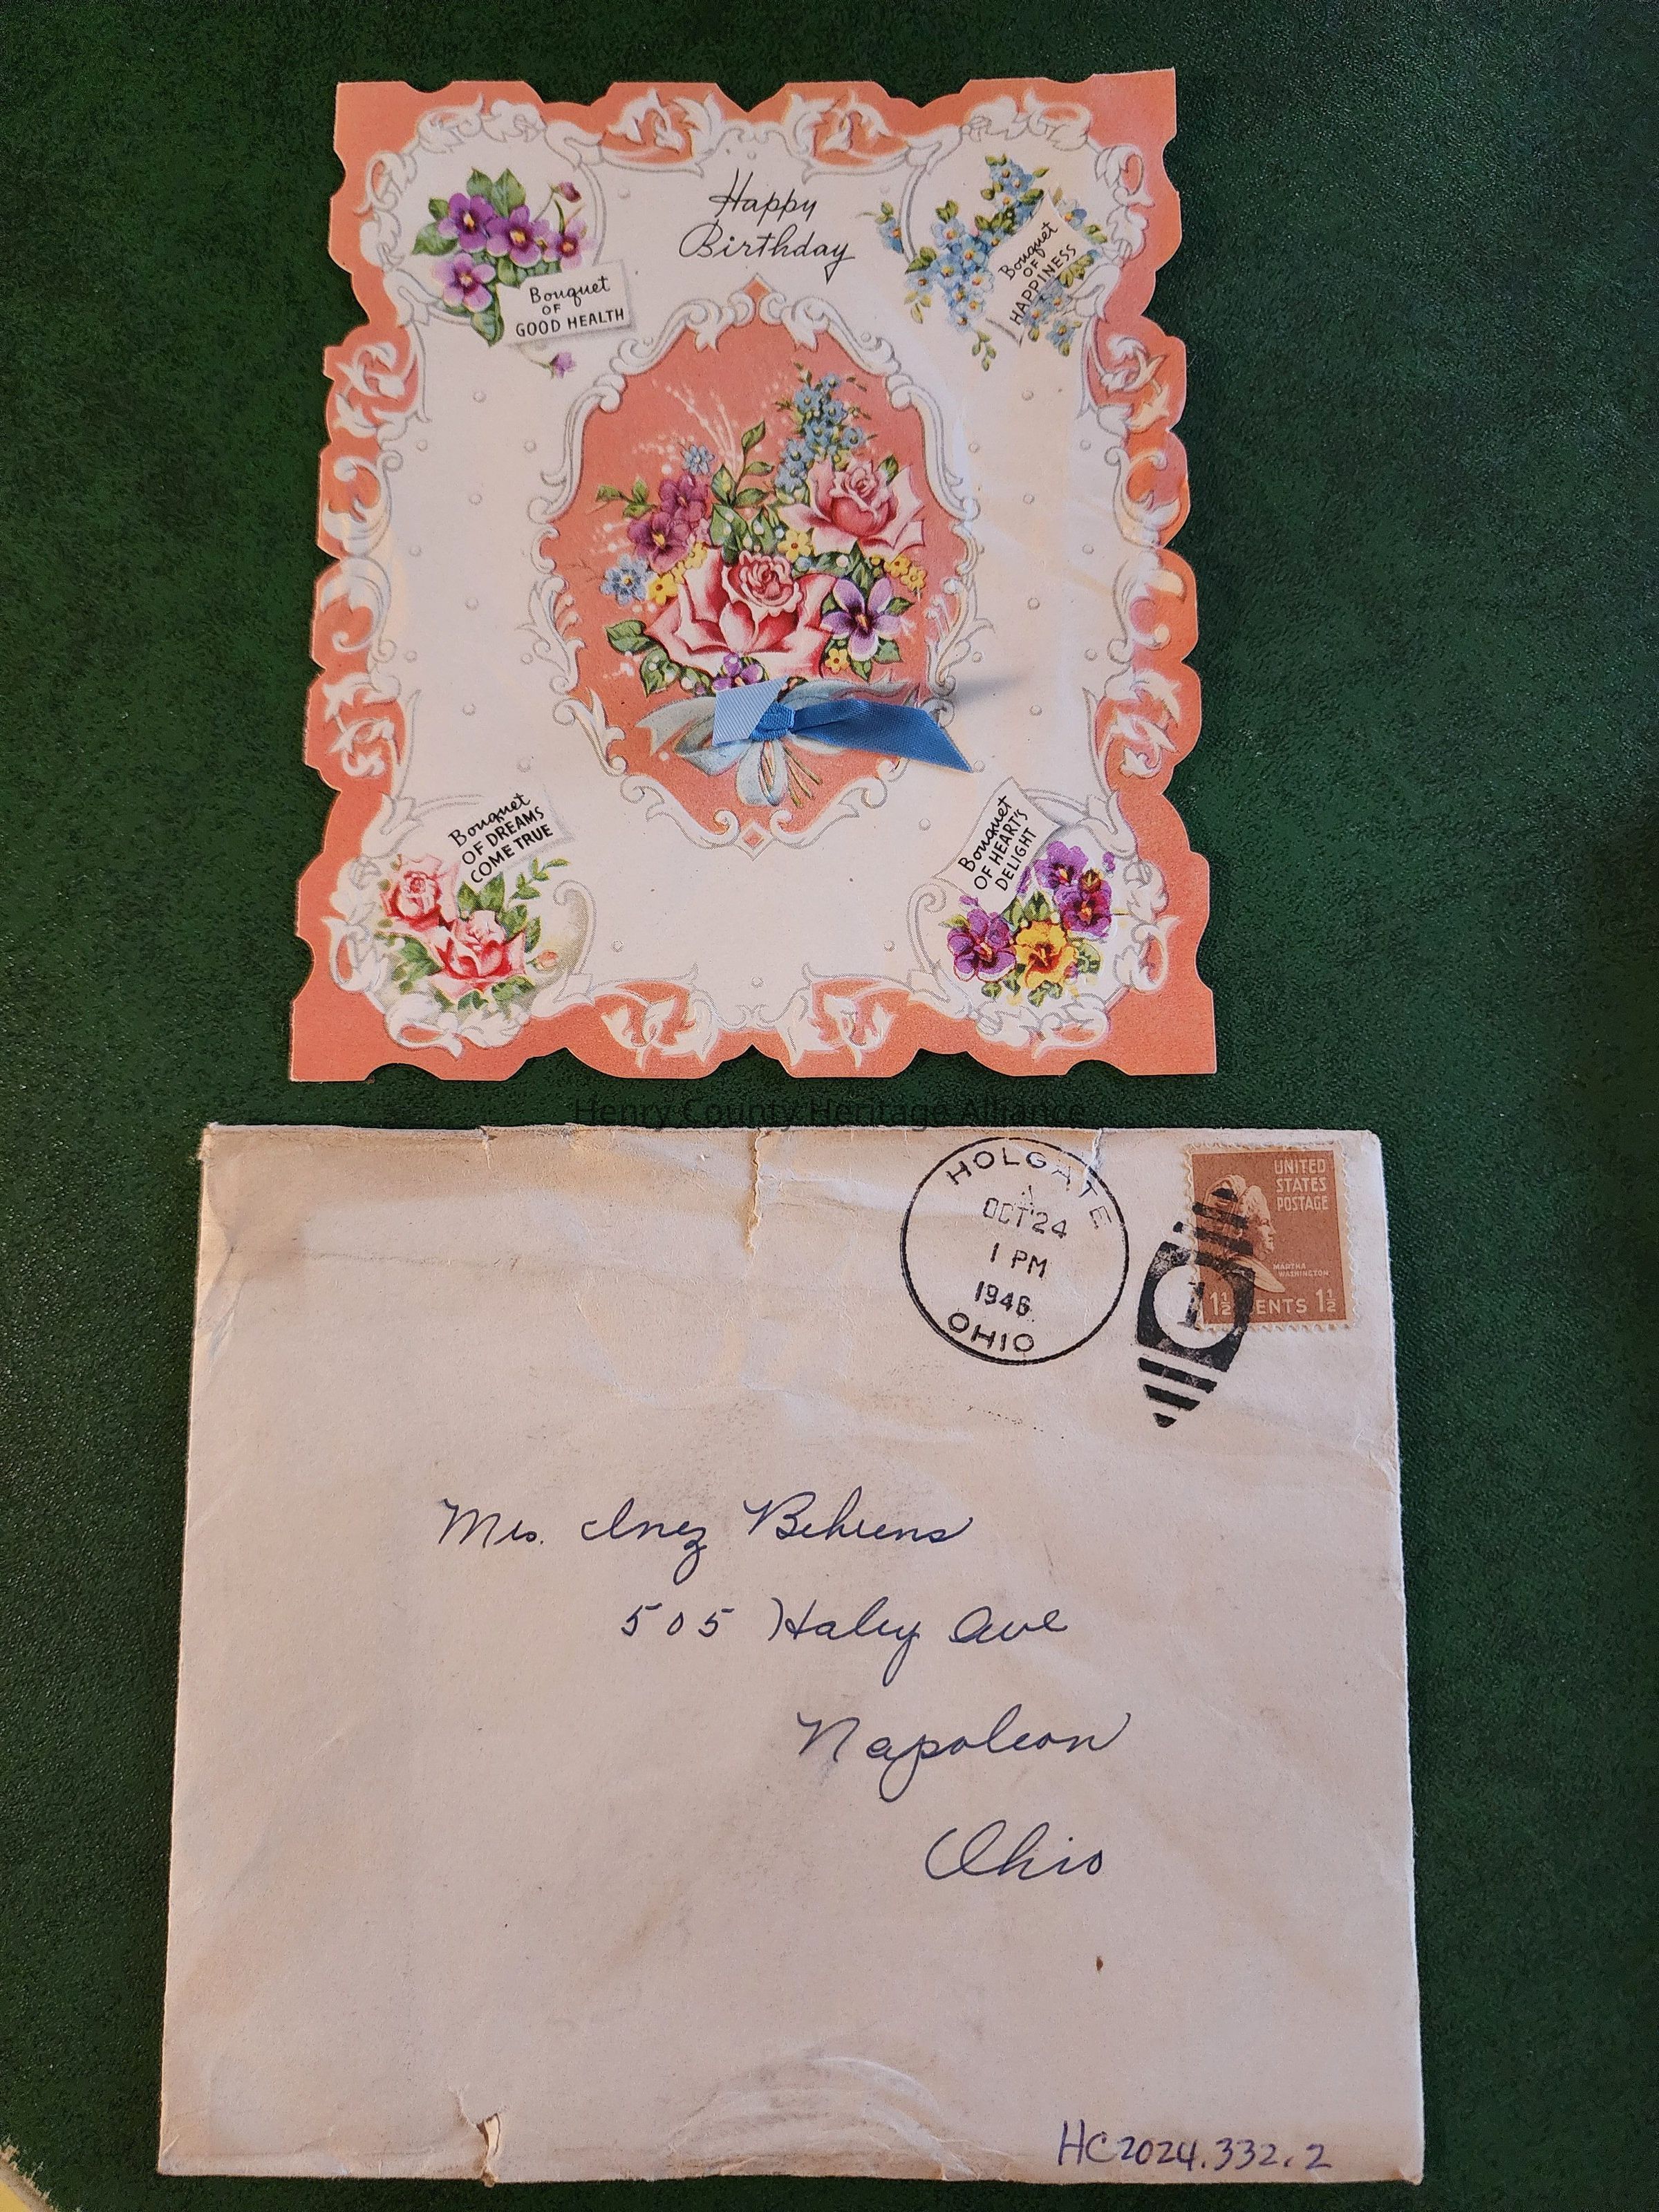 Happy
Birthday
Bouquet
OF
GOOD HEALTH
Bouquet
OF
HAPPINESS
Bouquet
OF DREAMS
COME TRUE
Bouquet
OF HEART'S
DELIGHT
Henry County Heritage Alliance
HOLGATE
A
OCT 24
1 PM
1946
OHIO
UNITED
STATES
POSTAGE
MARTHA
WASHINGTON
1½ CENTS 1½
1
Mrs. Inez Behrens
505 Haley Ave
Napoleon
Ohio
HC2024.332.2